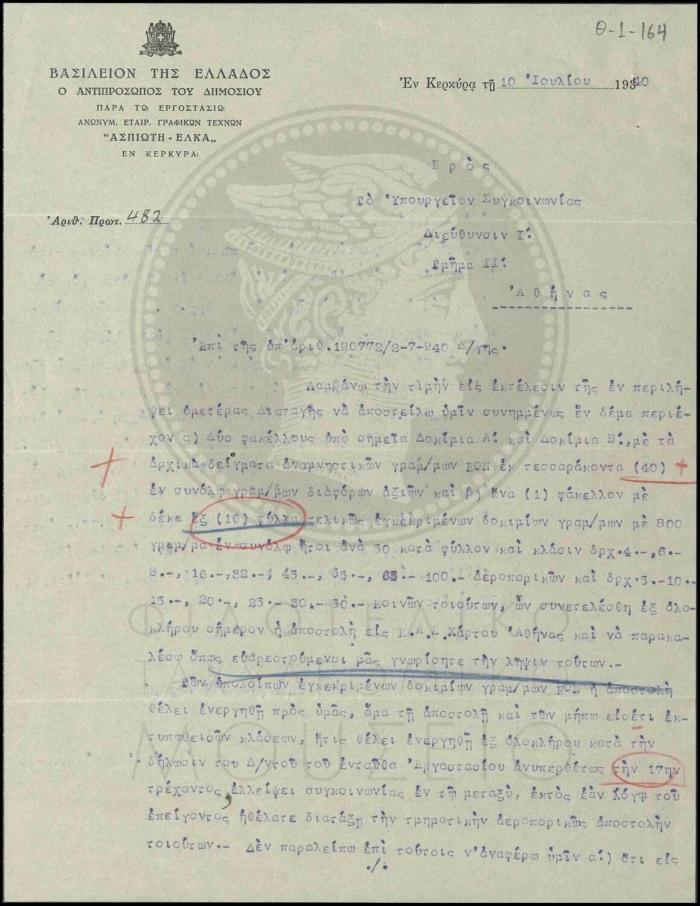 Θ-1-164
ΒΑΣΙΛΕΙΟΝ ΤΗΣ ΕΛΛΑΔΟΣ
Ο ΑΝΤΙΠΡΟΣΩΠΟΣ ΤΟΥ ΔΗΜΟΣΙΟΥ
ΠΑΡΑ ΤΩ ΕΡΓΟΣΤΑΣΙΩ
ΑΝΩΝΥΜ. ΕΤΑΙΡ. ΓΡΑΦΙΚΩΝ ΤΕΧΝΩΝ
"ΑΣΠΙΩΤΗ - ΕΛΚΑ"
ΕΝ ΚΕΡΚΥΡΑ
Ἐν Κερκύρᾳ τῇ 10 Ἰουλίου 1940
Ἀριθ. Πρωτ. 482
Πρὸς
Τὸ Ὑπουργεῖον Συγκοινωνίας
Διεύθυνσιν Γ.
Τμῆμα ΙΙ.
Ἀθήνας
Ἐπὶ τῆς ὑπ'ἀριθ. 190772/2-7-940 Δ/γῆς.
Λαμβάνω τὴν τιμὴν εἰς ἐκτέλεσιν τῆς ἐν περιλή-
ψει ὑμετέρας Διαταγῆς νὰ ἀποστείλω ὑμῖν συνημμένως ἕν δέμα περιέ-
χον α) Δύο φακέλλους ὑπὸ σημεῖα Δοκίμια Α. καὶ Δοκίμια Β., μὲ τὰ
ἀρχικὰ δείγματα ἀναμνηστικῶν γραμ/μων ΕΟΝ ἐκ τεσσαράκοντα (40)
ἐν συνόλῳ γραμ/μων διαφόρων ἀξιῶν καὶ β) ἕνα (1) φάκελλον μὲ
δέκα ἕξ (16) φύλλα τελικῶν ἐγκεκριμένων δοκιμίων γραμ/μων μὲ 800
γραμ/μα ἐν συνόλῳ ἤτοι ἀνὰ 50 κατὰ φύλλον καὶ κλάσιν δρχ. 4.-, 6.-
8.-, 16.-, 32.-, 45.-, 55.-, 65.- 100.- ἀεροπορικῶν καὶ δρχ. 5.- 10.-
15.-, 20.-, 25.- 30.- 50.- κοινῶν τοιούτων, ὧν συνετελέσθη ἐξ ὁλο-
κλήρου σήμερον ἡ ἀποστολὴ εἰς Κ.Α.Σ. Χάρτου Ἀθήνας καὶ νὰ παρακα-
λέσω ὅπως εὐαρεστούμενοι μᾶς γνωρίσητε τὴν λῆψιν τούτων.-
Τῶν ὑπολοίπων ἐγκεκριμένων δοκιμίων γραμ/μων ΕΟΝ ἡ ἀποστολὴ
θέλει ἐνεργηθῆ πρὸς ὑμᾶς, ἅμα τῇ ἀποστολῇ καὶ τῶν μήπω εἰσέτι ἐκ-
τυπωθεισῶν κλάσεων, ἥτις θέλει ἐνεργηθῆ ἐξ ὁλοκλήρου κατὰ τὴν
δήλωσιν τοῦ Δ/ντοῦ τοῦ ἐνταῦθα Ἐργοστασίου ἀνυπερθέτως τὴν 17ην
τρέχοντος ἐλλείψει συγκοινωνίας ἐν τῷ μεταξύ, ἐκτὸς ἐὰν λόγῳ τοῦ
ἐπείγοντος ἠθέλατε διατάξη τὴν τμηματικὴν ἀεροπορικῶς ἀποστολὴν
τοιούτων.- Δὲν παραλείπω ἐπὶ τούτοις ν'ἀναφέρω ὑμῖν α.) ὅτι εἰς
./.